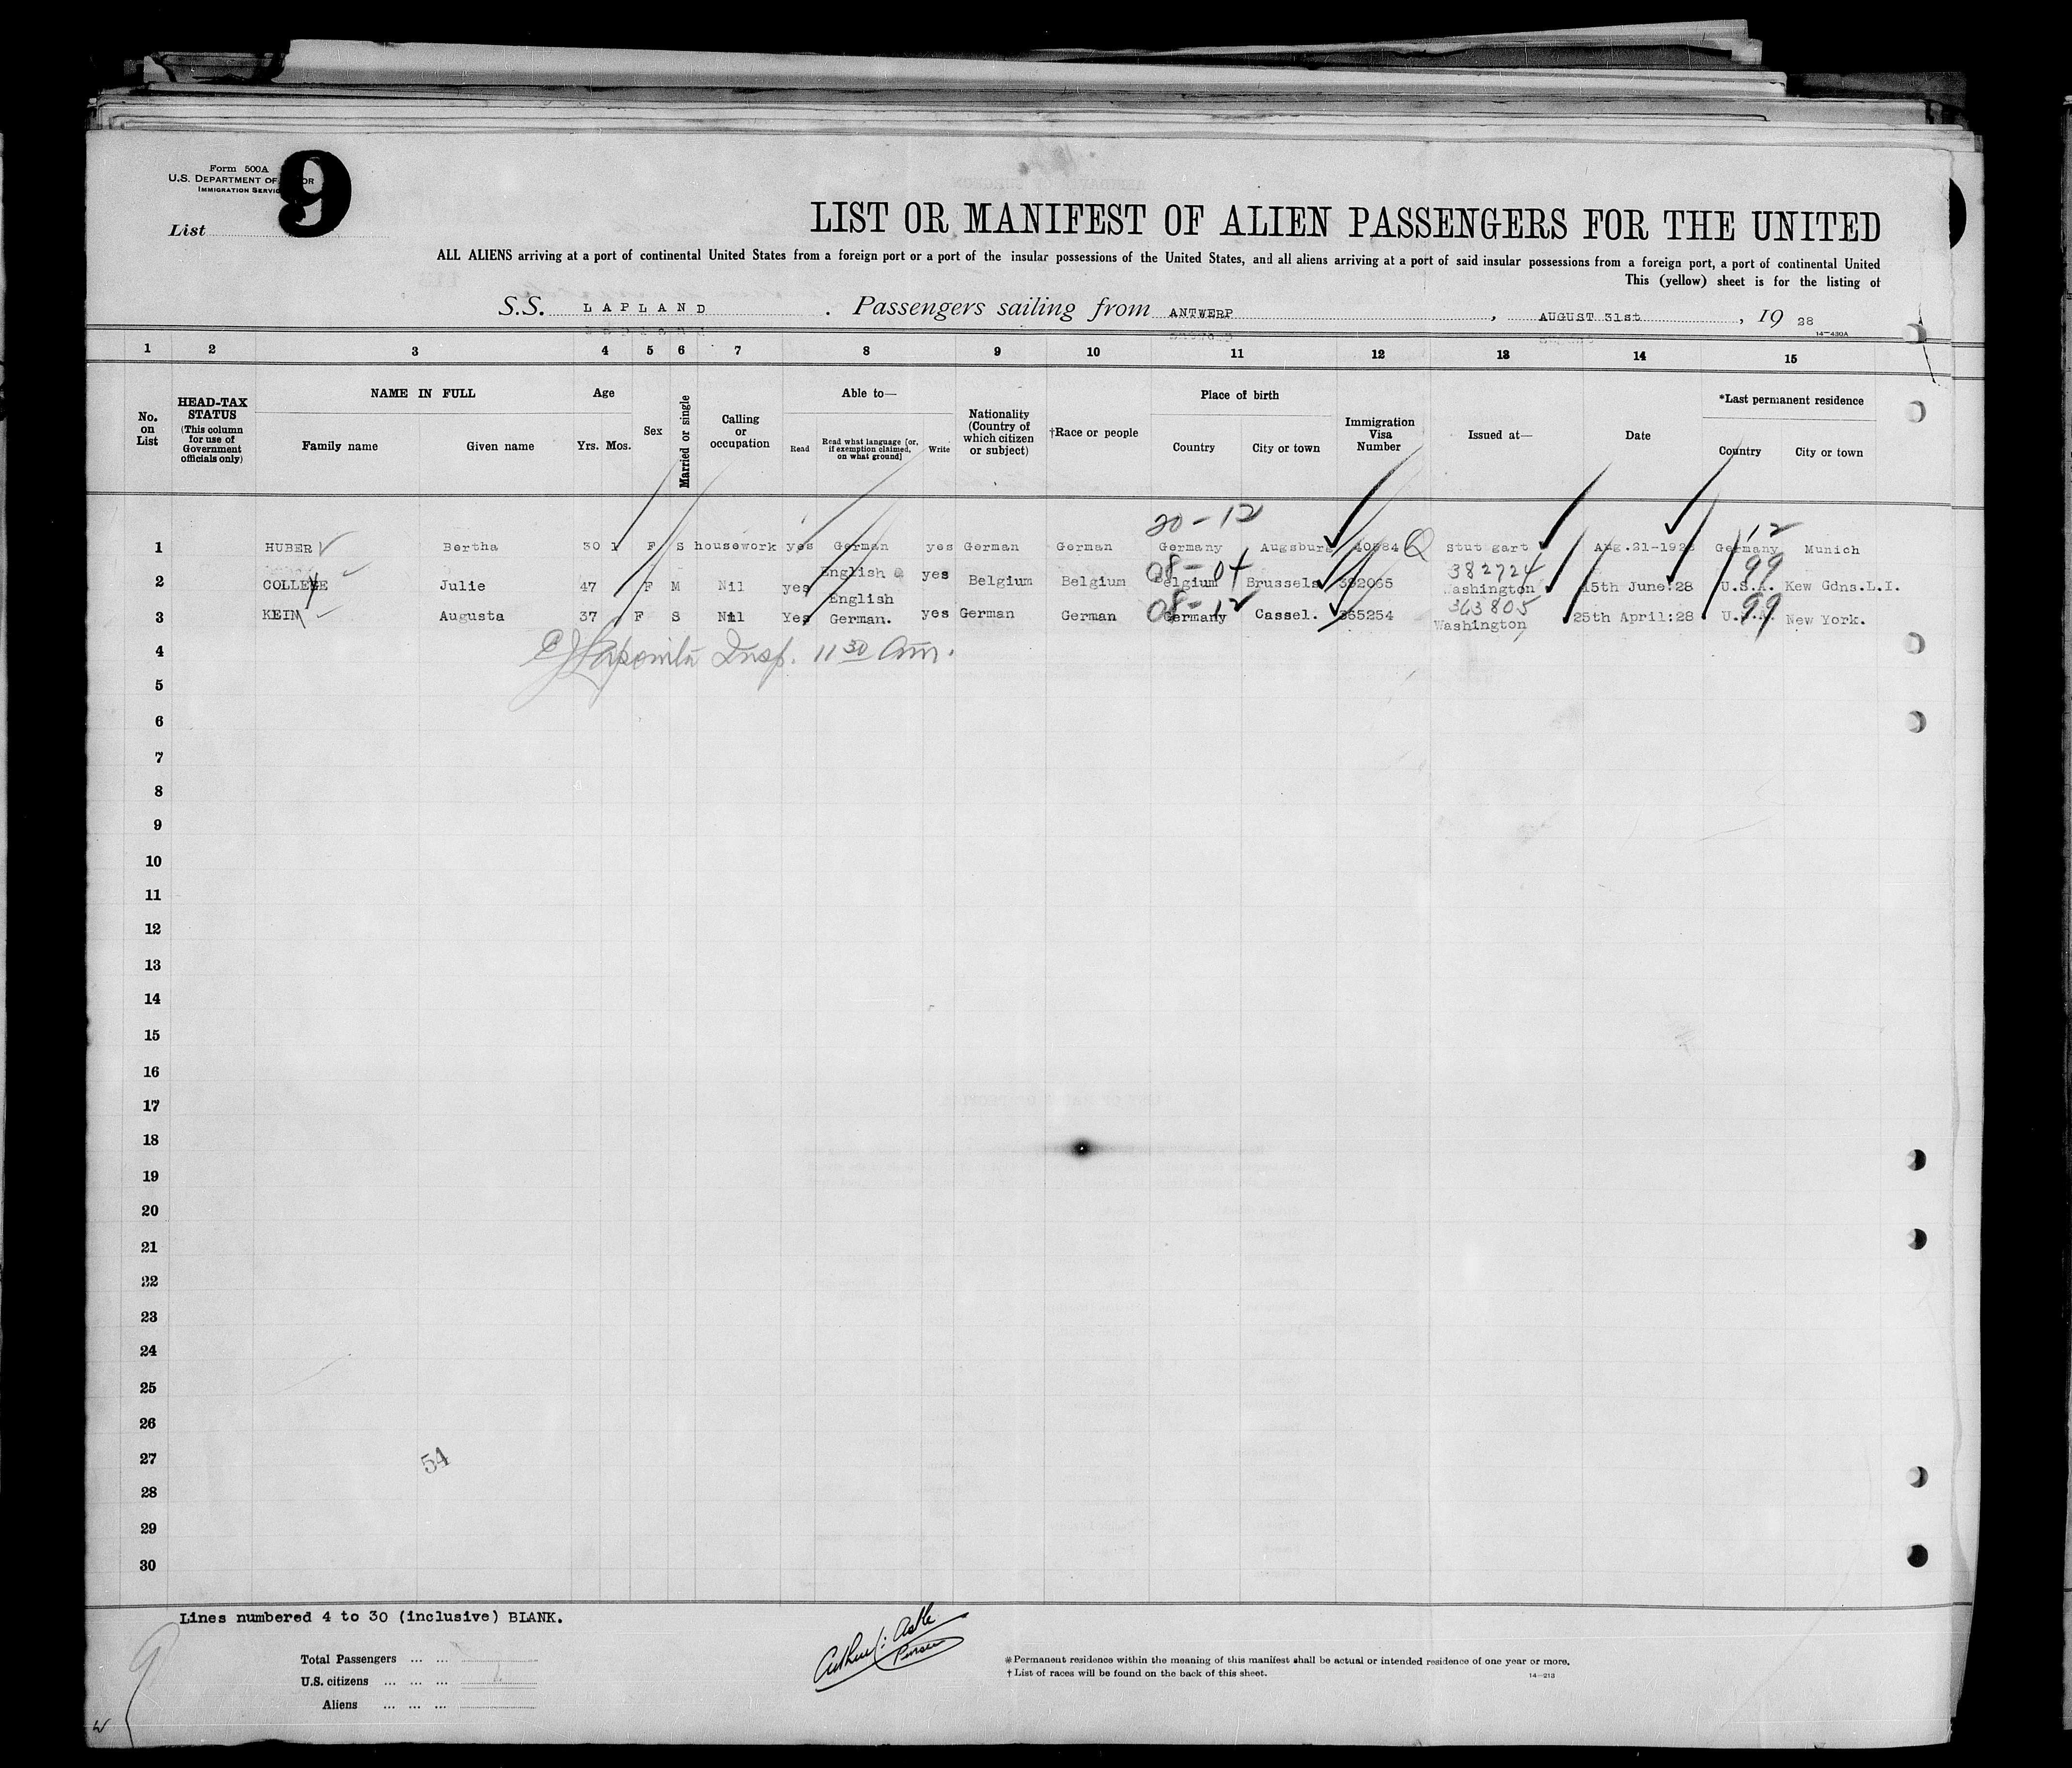 Form 500A
U.S. DEPARTMENT OF
IMMIGRATION SERVICE
9
List
LIST OR MANIFEST OF ALIEN PASSENGERS FOR THE UNITED
ALL ALIENS arriving at a port of continental United States from a foreign port or a port of the insular possessions of the United States, and all aliens arriving at a port of said insular possessions from a foreign port, a port of continental United
This (yellow) sheet is for the listing of
S.S. LAPLAND . Passengers sailing from ANTWERP , AUGUST 31st , 19 28
14-430A
1 2 3 4 5 6 7 8 9 10 11 12 13 14 15
No. on List
HEAD-TAX STATUS (This column for use of Government officials only)
NAME IN FULL
Family name Given name
Age
Yrs. Mos.
Sex
Married or single
Calling or occupation
Able to—
Read Read what language [or, if exemption claimed, on what ground] Write
Nationality (Country of which citizen or subject)
†Race or people
Place of birth
Country City or town
Immigration Visa Number
Issued at—
Date
*Last permanent residence
Country City or town
20-12 12
1 HUBER Bertha 30 1 F S housework yes German yes German German Germany Augsburg 40984 Q Stut gart Aug.21-1928 Germany Munich
08-04 382724 99
2 COLLEGE Julie 47 F M Nil yes English & yes Belgium Belgium Belgium Brussels 382065 Washington 15th June:28 U.S.A. Kew Gdns.L.I.
08-12 363805 99
3 KEIM Augusta 37 F S Nil Yes English German. yes German German Germany Cassel. 365254 Washington 25th April:28 U.S.A. New York.
4 Insp. 11 30 Am.
5
6
7
8
9
10
11
12
13
14
15
16
17
18
19
20
21
22
23
24
25
26
27
54
28
29
30
Lines numbered 4 to 30 (inclusive) BLANK.
9
Total Passengers ... ...
U.S. citizens ... ... ...
Aliens ... ... ...
Arthur J: Astle
Purser
*Permanent residence within the meaning of this manifest shall be actual or intended residence of one year or more.
† List of races will be found on the back of this sheet.
14-213